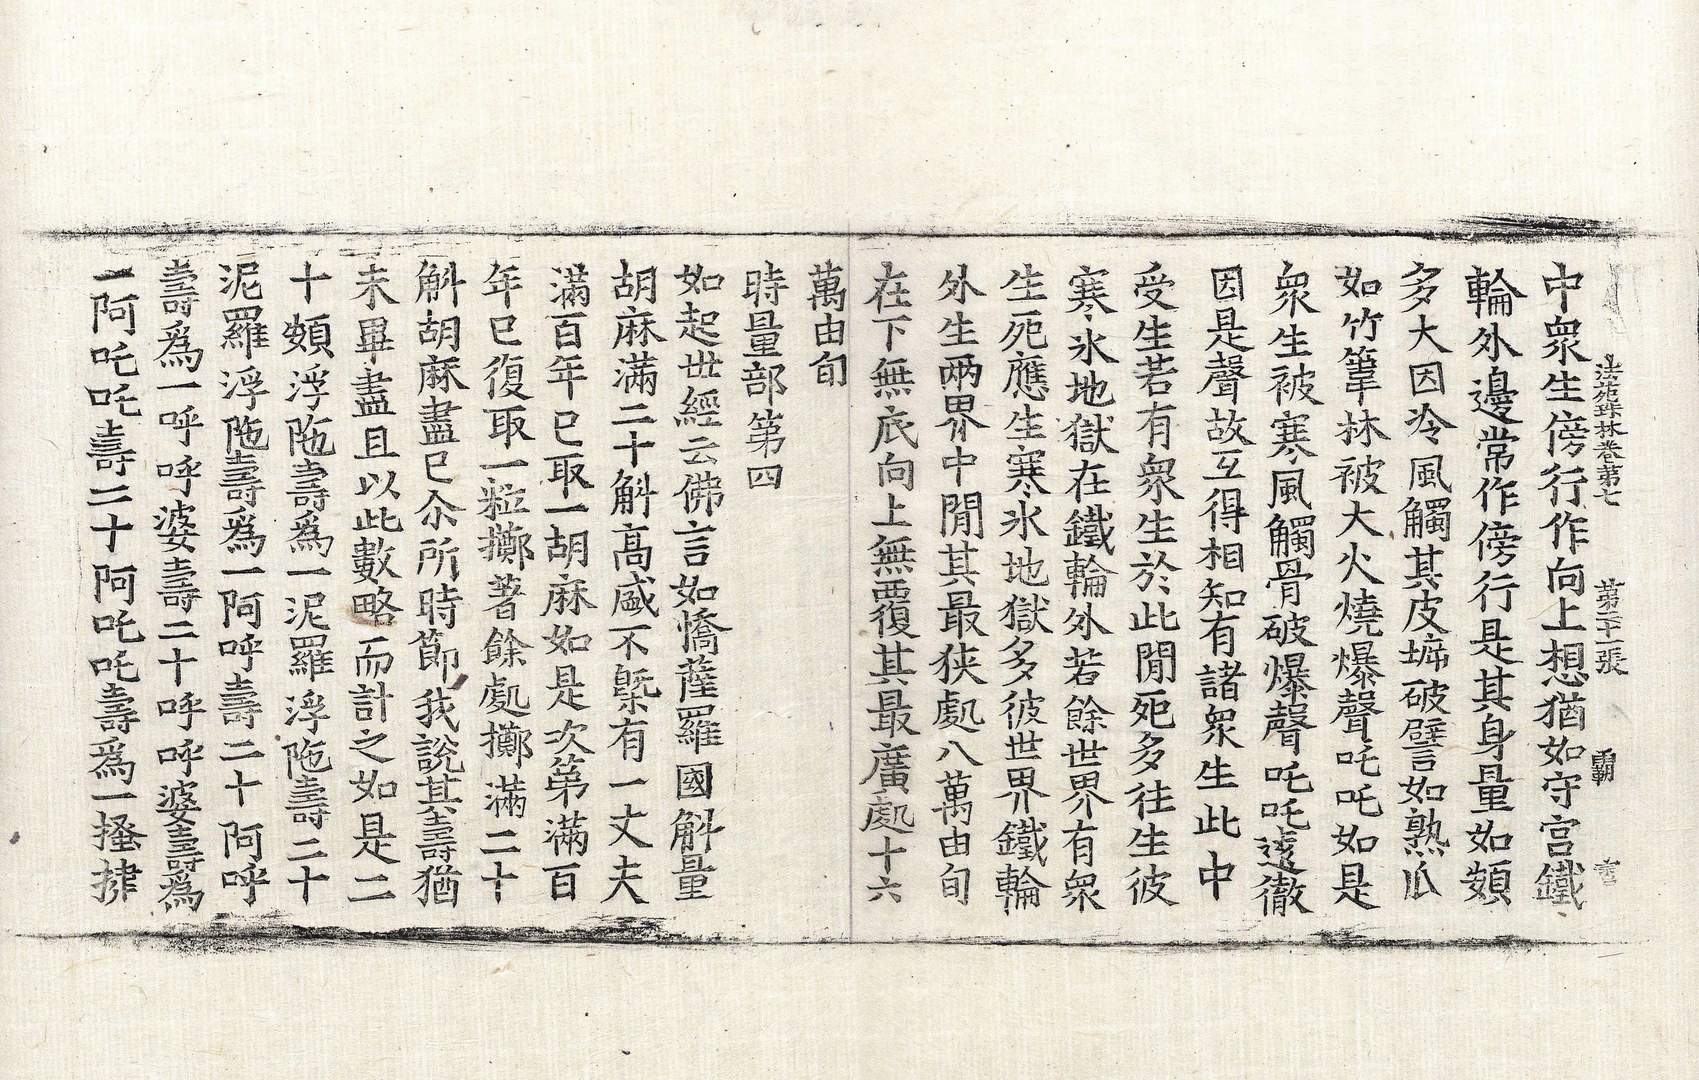 法苑珠林卷第七 第二十一張 覇
中衆生傍行作向上想猶如守宫鐵
輪外邊常作傍行是其身量如頞
多大因冷風觸其皮㘿破譬如熟瓜
如竹葦林被大火燒爆聲吒吒如是
衆生被寒風觸骨破爆聲吒吒遠徹
因是聲故互得相知有諸衆生此中
受生若有衆生於此間死多往生彼
寒氷地獄在鐵輪外若餘世界有衆
生死應生寒氷地獄多彼世界鐵輪
外生兩界中間其最狹處八萬由旬
在下無底向上無覆其最廣處十六
萬由旬
時量部第四
如起世經云佛言如憍薩羅國斛量
胡麻滿二十斛高盛不槩有一丈夫
滿百年已取一胡麻如是次第滿百
年已復取一粒擲著餘處擲滿二十
斛胡麻盡已尒所時節我說其壽猶
未畢盡且以此數略而計之如是二
十頞浮陁壽爲一泥羅浮陁壽二十
泥羅浮陁壽爲一阿呼壽二十阿呼
壽爲一呼呼婆壽二十呼呼婆壽爲
一阿吒吒壽二十阿吒吒壽爲一搔揵